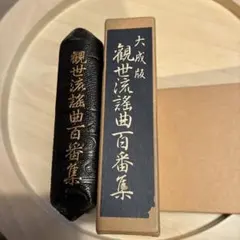 大成版
観世流謡曲百番集
観世流謡曲百番集